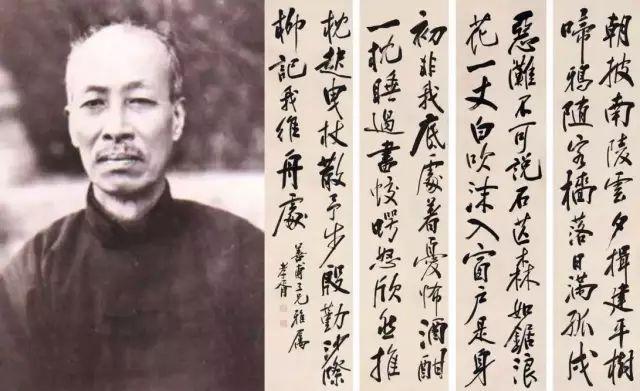 朝披南陵雲夕揖建平樹
啼鴉隨客檣落日滿孤戍
惡灘不可說石芒森如鋸浪
花一丈白吹沫入窗戶是身
初非我底處着憂怖酒酣
一枕睡過盡蛟鱷怒欣然推
枕起曳杖散予步殷勤沙際
柳記我維舟處
善 三兄雅屬
孝胥